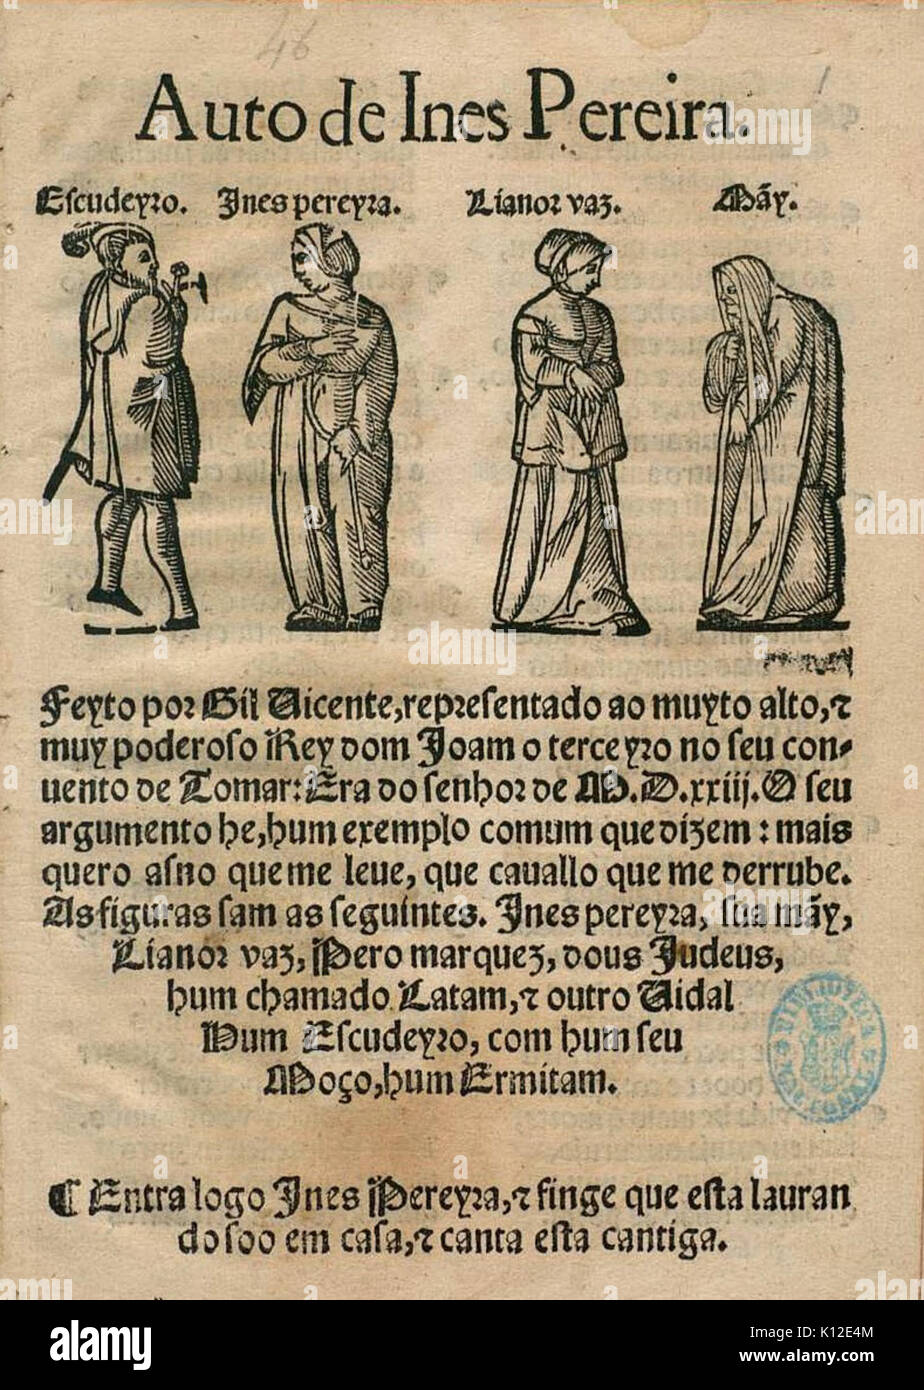 46
Auto de Ines Pereira.
Eſcudeyro. Ines pereyra. Lianor vaz. Mãy.
Feyto por Gil Vicente, repreſentado ao muyto alto, ⁊
muy poderoſo Rey dom Joam o terceyro no ſeu con-
uento de Tomar: Era do ſenhor de M.D.xxiij. O ſeu
argumento he, hum exemplo comum que dizem: mais
quero aſno que me leue, que cauallo que me derrube.
As figuras ſam as ſeguintes. Ines pereyra, ſua mãy,
Lianor vaz, Pero marquez, dous Judeus,
hum chamado Latam, ⁊ outro Vidal
Hum Eſcudeyro, com hum ſeu
Moço, hum Ermitam.
BIBLIOTECA NACIONAL
¶ Entra logo Ines Pereyra, ⁊ finge que eſta lauran
do ſoo em caſa, ⁊ canta eſta cantiga.
alamy
Image ID: K12E4M
www.alamy.com